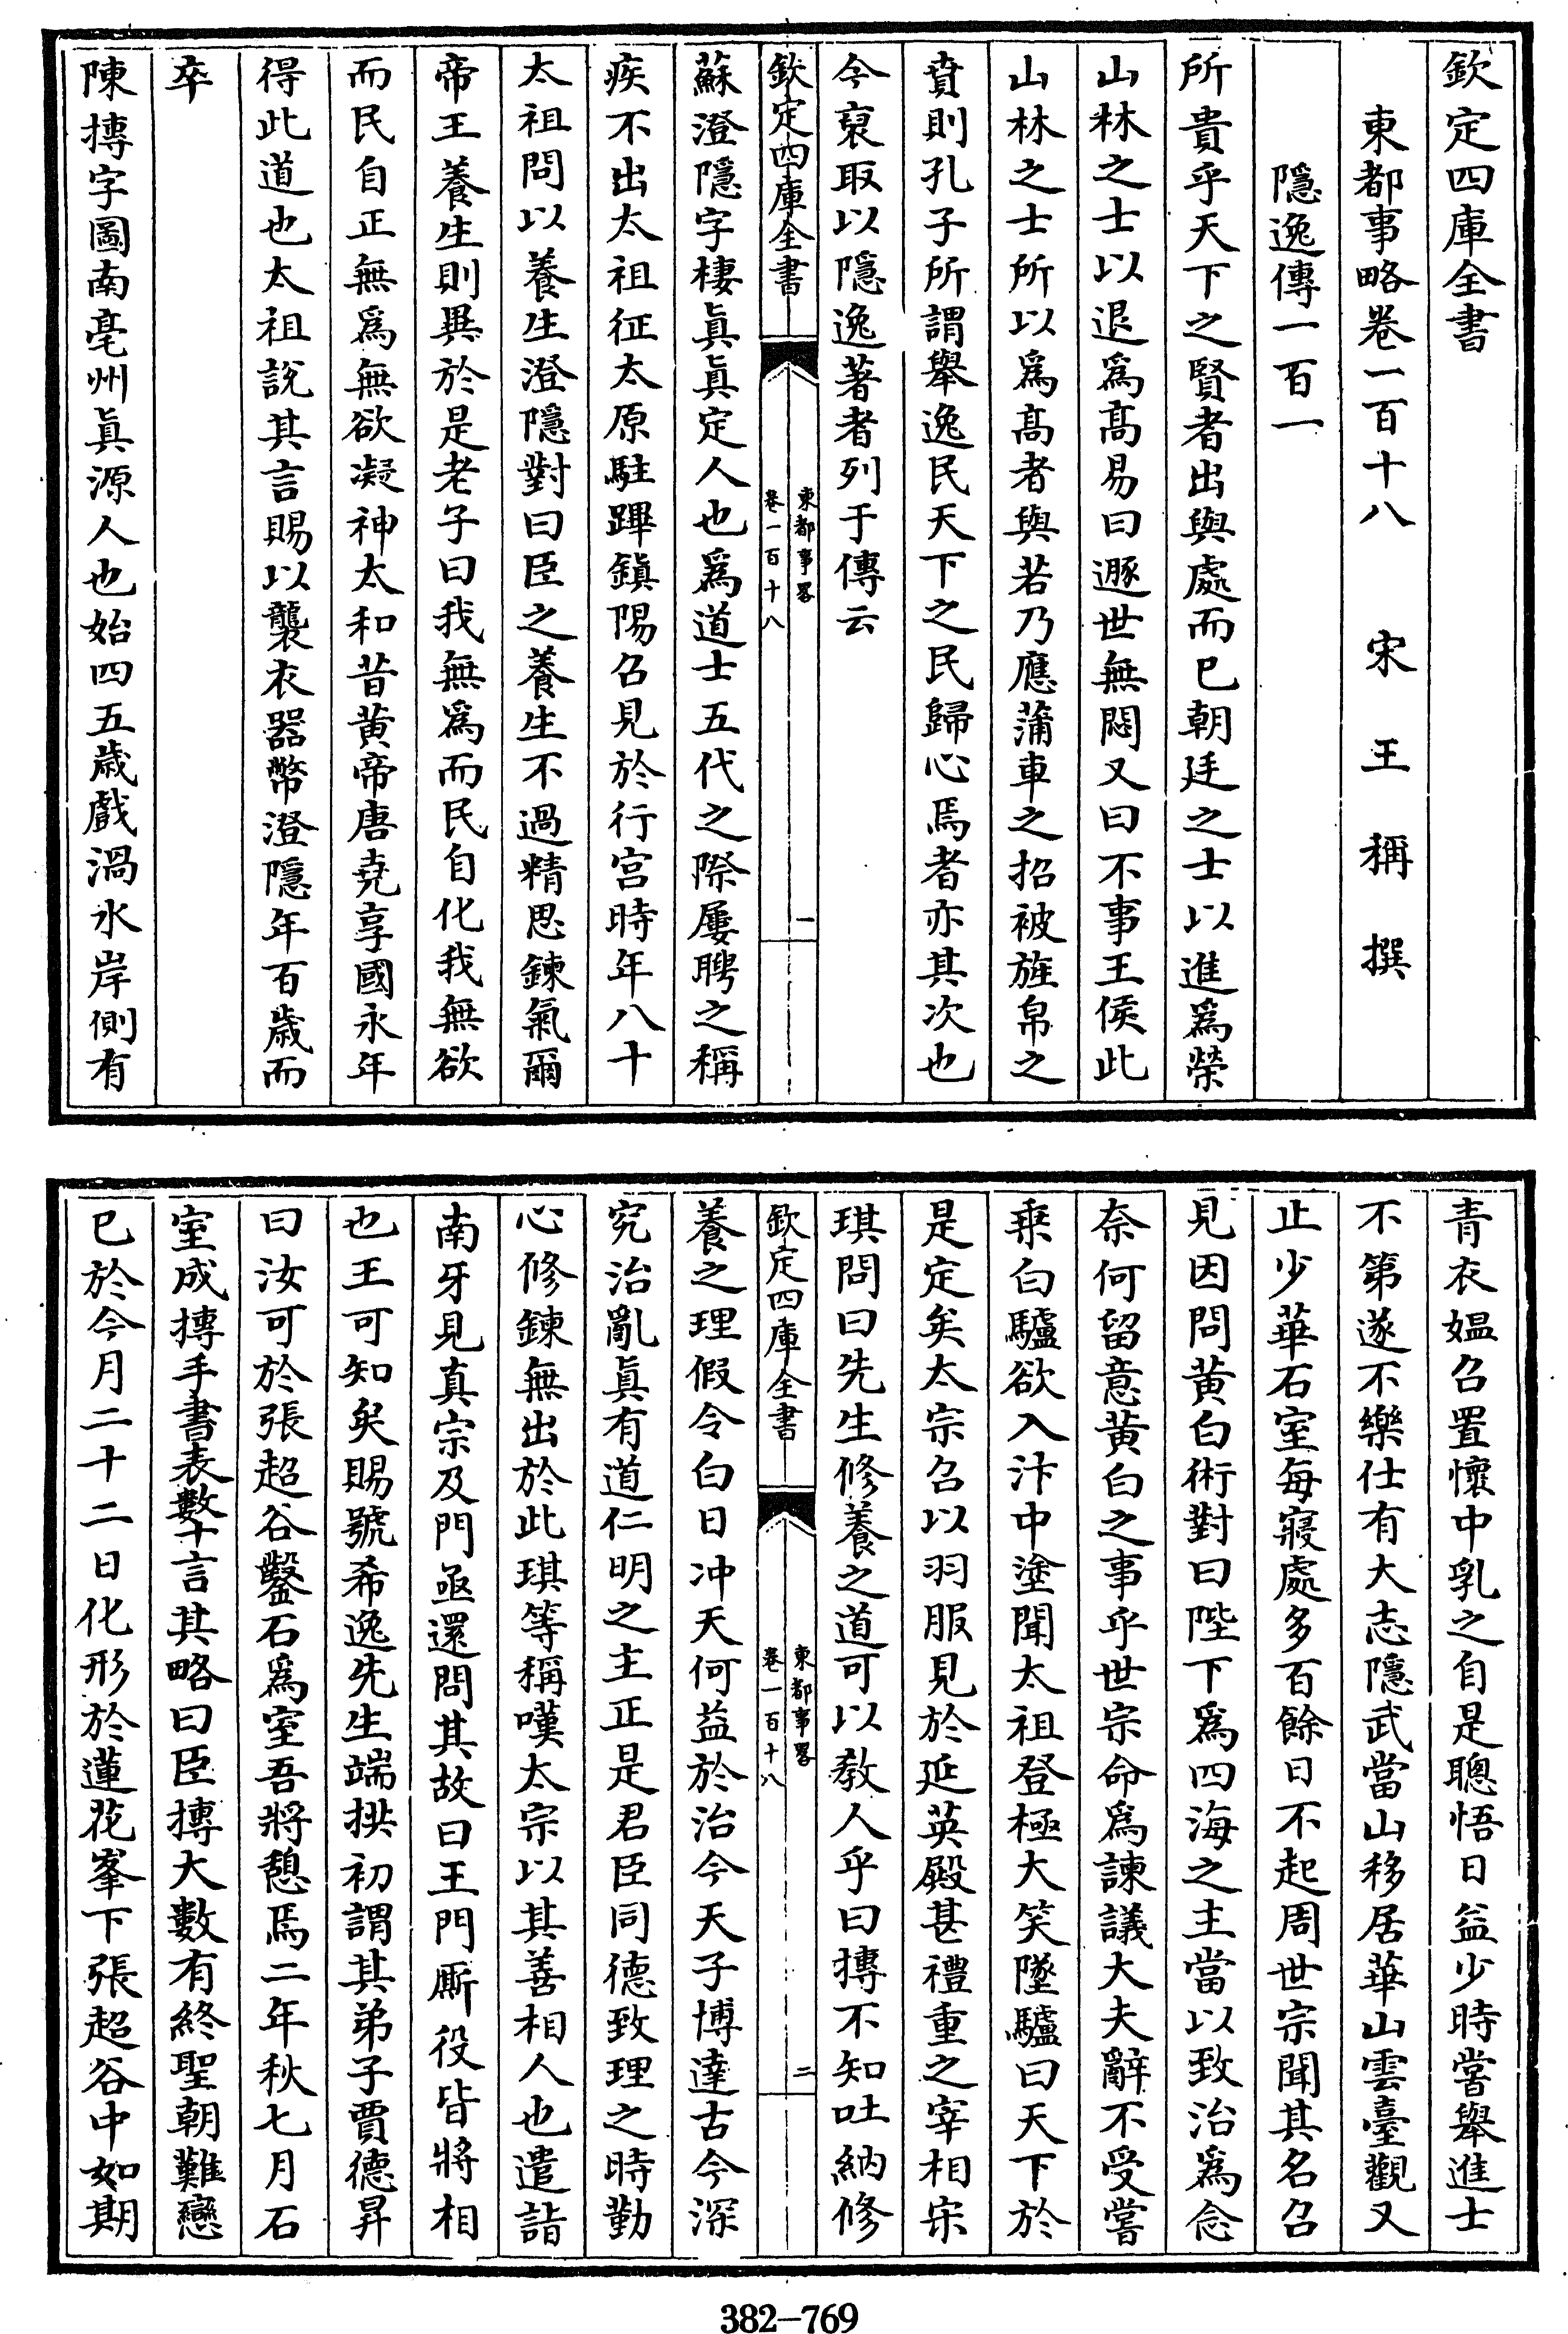 欽定四庫全書
東都事略卷一百十八　宋　王　稱　撰
隱逸傳一百一
所貴乎天下之賢者出與處而已朝廷之士以進爲榮
山林之士以退爲髙易曰遯世無悶又曰不事王侯此
山林之士所以爲髙者與若乃應蒲車之招被旌帛之
賁則孔子所謂舉逸民天下之民歸心焉者亦其次也
今裒取以隱逸著者列于傳云
欽定四庫全書
東都事畧
卷一百十八
一
蘇澄隱字棲眞眞定人也爲道士五代之際屢聘之稱
疾不出太祖征太原駐蹕鎭陽召見於行宫時年八十
太祖問以養生澄隱對曰臣之養生不過精思鍊氣爾
帝王養生則異於是老子曰我無爲而民自化我無欲
而民自正無爲無欲凝神太和昔黄帝唐堯享國永年
得此道也太祖說其言賜以襲衣器幣澄隱年百歲而
卒
陳摶字圖南亳州眞源人也始四五歲戲渦水岸側有
青衣媪召置懷中乳之自是聰悟日益少時嘗舉進士
不第遂不樂仕有大志隱武當山移居華山雲臺觀又
止少華石室每寢處多百餘日不起周世宗聞其名召
見因問黄白術對曰陛下爲四海之主當以致治爲念
奈何留意黄白之事乎世宗命爲諫議大夫辭不受嘗
乗白驢欲入汴中塗聞太祖登極大笑墜驢曰天下於
是定矣太宗召以羽服見於延英殿甚禮重之宰相宋
琪問曰先生修養之道可以教人乎曰摶不知吐納修
欽定四庫全書
東都事畧
卷一百十八
二
養之理假令白日冲天何益於治今天子博達古今深
究治亂眞有道仁明之主正是君臣同德致理之時勤
心修鍊無出於此琪等稱嘆太宗以其善相人也遣詣
南牙見真宗及門亟還問其故曰王門厮役皆將相
也王可知矣賜號希逸先生端拱初謂其弟子賈德昇
曰汝可於張超谷鑿石爲室吾將憩焉二年秋七月石
室成摶手書表數十言其略曰臣摶大數有終聖朝難戀
已於今月二十二日化形於蓮花峯下張超谷中如期
382-769